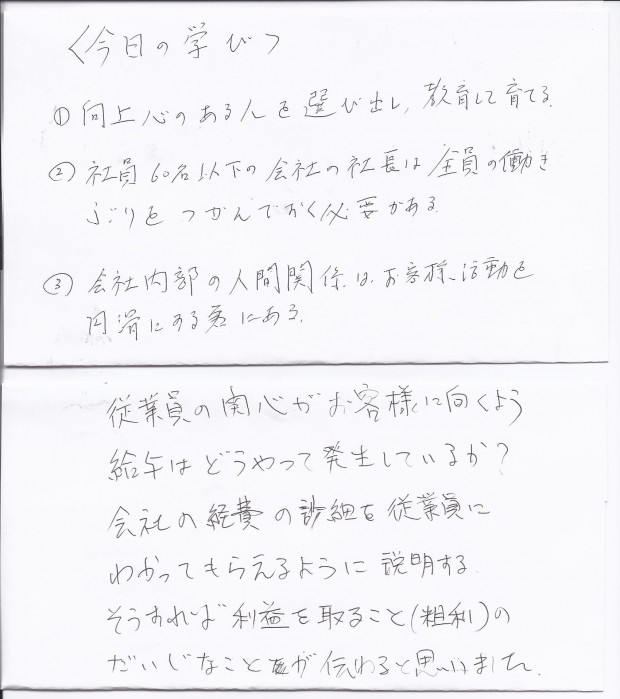 〈今日の学び〉
① 向上心のある人を選び出し、教育して育てる。
② 社員60名以下の会社の社長は全員の働き
ぶりをつかんでおく必要がある。
③ 会社内部の人間関係は、お客様活動を
円滑にする為にある。
従業員の関心がお客様に向くよう
給与はどうやって発生しているか?
会社の経費の詳細を従業員に
わかってもらえるように説明する。
そうすれば利益を取ること(粗利)の
だいじなことが伝わると思いました。